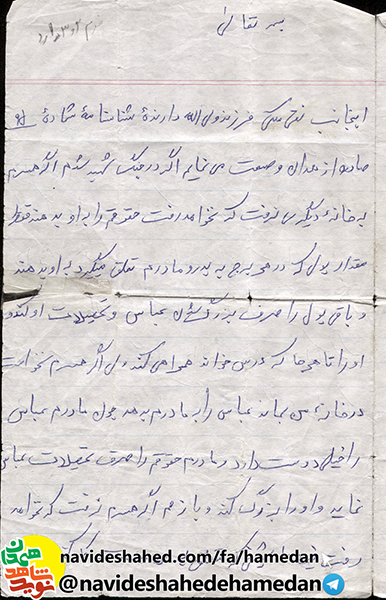 بسمه تعالی
اینجانب نقی فرزند ولی الله دارنده شناسنامه شماره
صادره از همدان وصیت می نمایم اگر در جنگ شهید شدم اگر همسرم
به خانه دیگری نرفت که نخواهد رفت حقوقم را به او بدهند فقط
مقدار پول که در هر برج به پدر و مادرم تعلق میگیرد به او بدهند
و باقی پول را صرف بزرگ شدن عباس و تحصیلات او کند و
او را تا هر جا که درس خواند همراهی کند ولی اگر همسرم نخواست
در خانه من بماند عباس را به مادرم بدهد چون مادرم عباس
را خیلی دوست دارد و مادرم حقوقم را صرف تحصیلات عباس
نماید و او را بزرگ کند و باز هم اگر همسرم نرفت که نخواهد
رفت
navideshahed.com/fa/hamedan
@navideshahedehamedan
نوید شاهد همدان